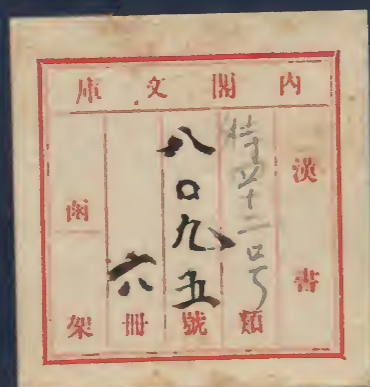 内閣文庫
漢書
類
八〇九五號
六冊
函
架